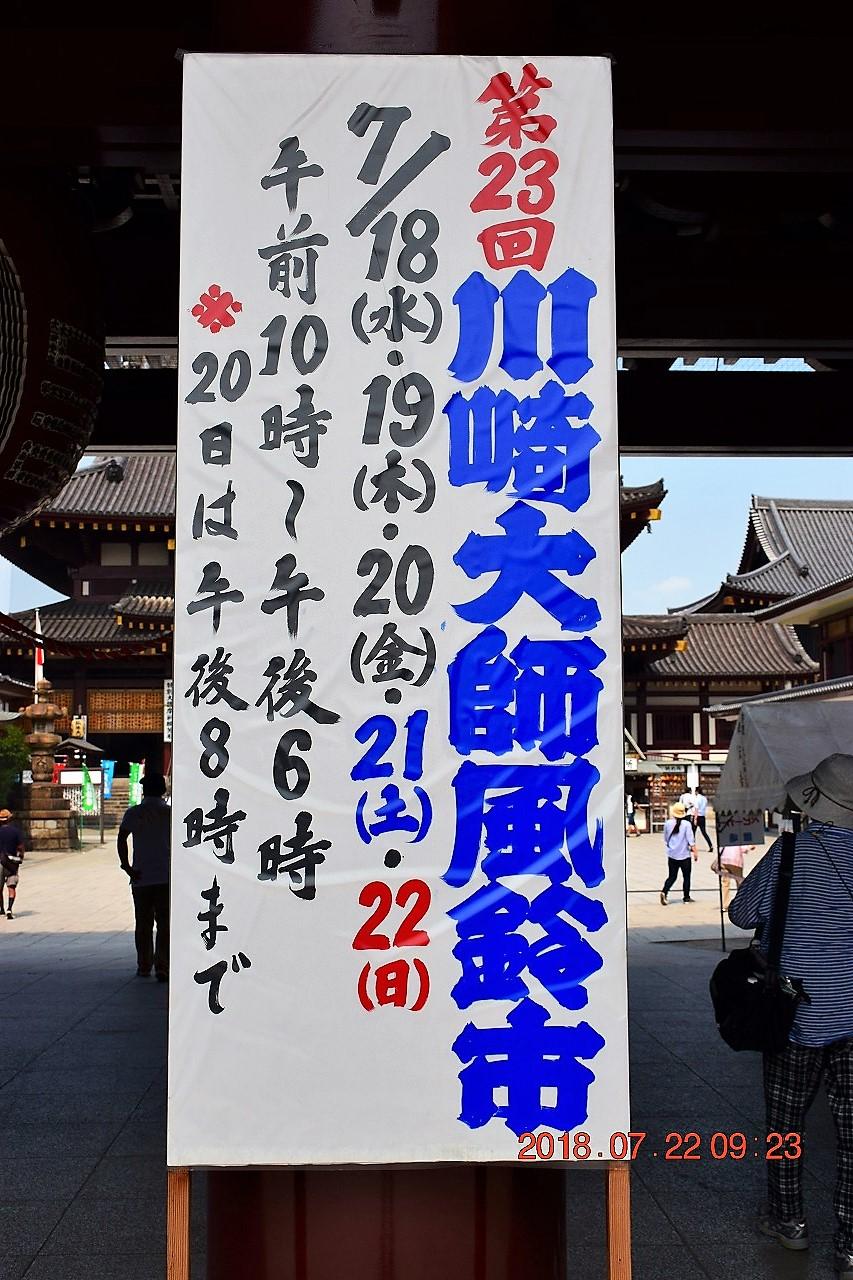 第23回川崎大師風鈴市
7/18(水)・19(木)・20(金)・21(土)・22(日)
午前10時~午後6時
※20日は午後8時まで
2018.07.22 09:23